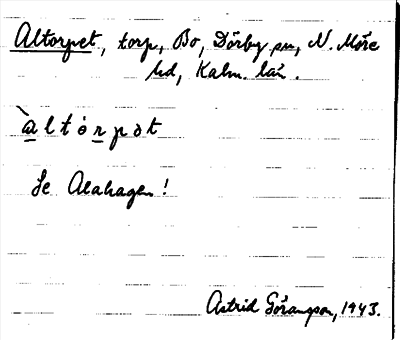 Altorpet, torp, Bo, Dörby sn, N. Möre
hd, Kalm. län.
àltòrpət
Se Alahagen!
Astrid Göransson, 1943.